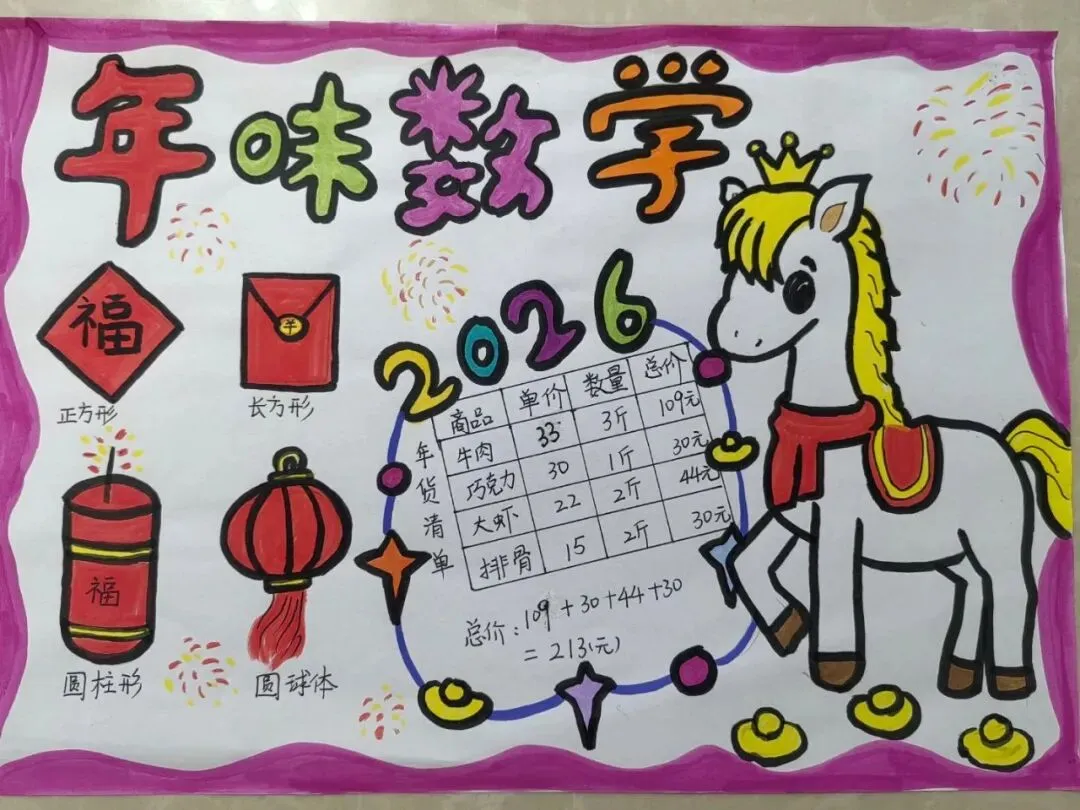 年味数学
2026
福
半
正方形
长方形
福
圆柱形
圆球体
年货清单
商品 单价 数量 总价
牛肉 33 3斤 109元
巧克力 30 1斤 30元
大虾 22 2斤 44元
排骨 15 2斤 30元
总价:109+30+44+30
=213(元)